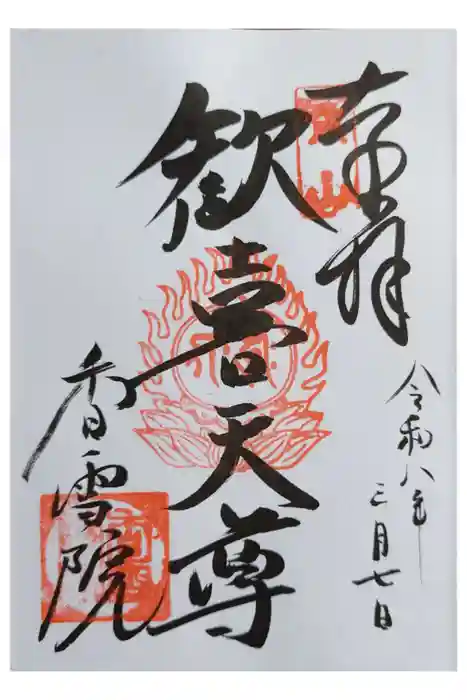 奉拝
令和八年
三月七日
歓喜天尊
香雪院